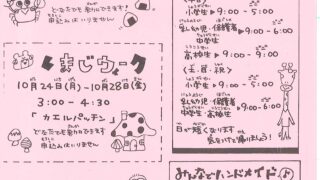 どなたでも参加できます♪
申込はいりません
くまじウィーク
10月24日(月)-10月28日(金)
3:00 - 4:30
「カエルパッチン」
どなたでも参加できます
申込みはいりません
小学生▶9:00 - 5:00
乳幼児・保護者
中学生
▶9:00-6:00
高校生▶9:00 - 9:00
〈土・日・祝〉
小学生▶9:00 - 5:00
乳幼児・保護者
中学生・高校生
▶9:00-6:00
日が短くなります
気をつけて帰りましょう!
みんなでハンドメイド♪